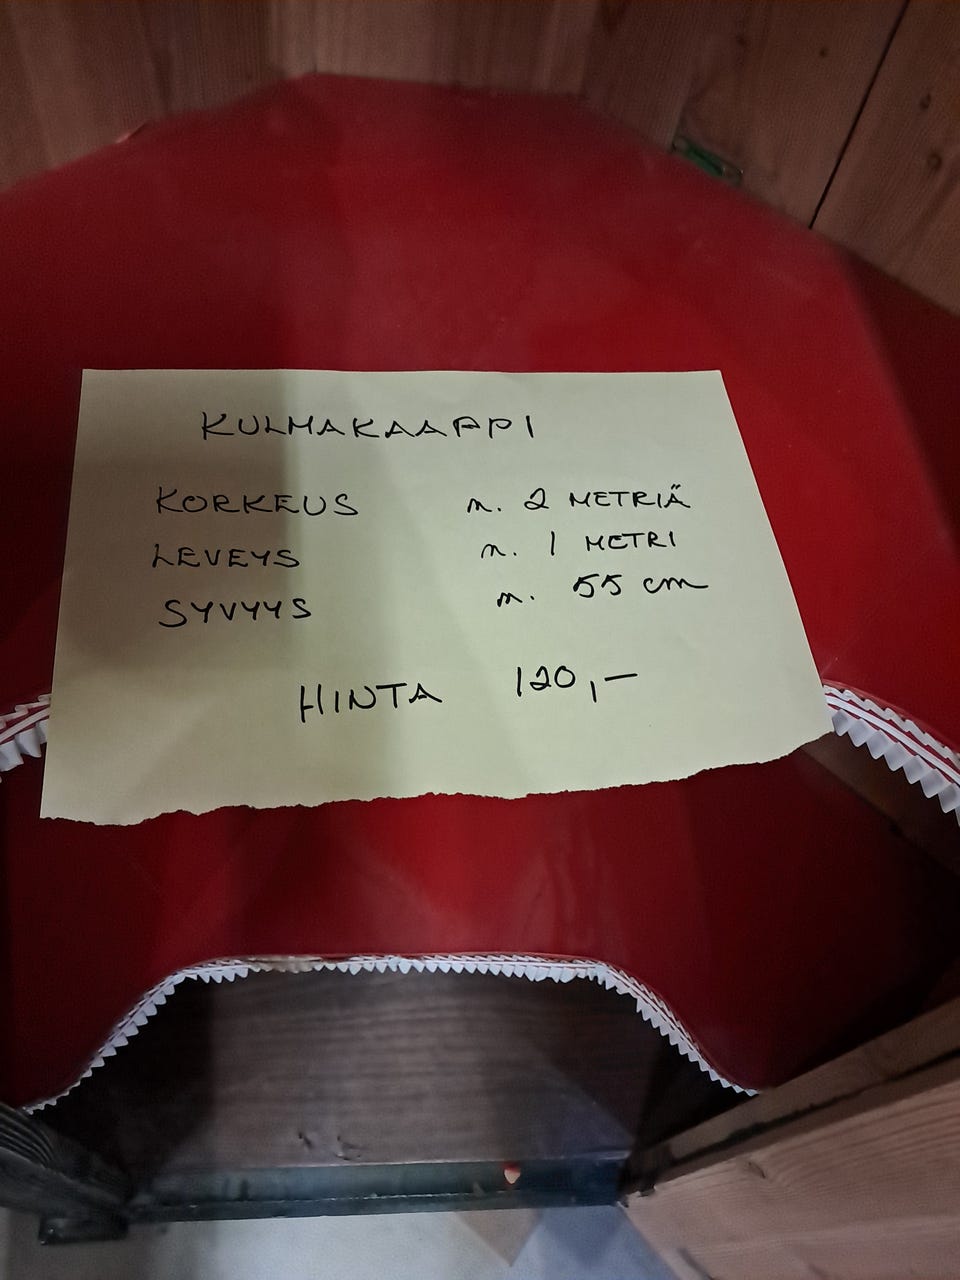 KULMAKAAPPI
KORKEUS n. 2 METRIÄ
LEVEYS n. 1 METRI
SYVYYS n. 55 cm
HINTA 120,-